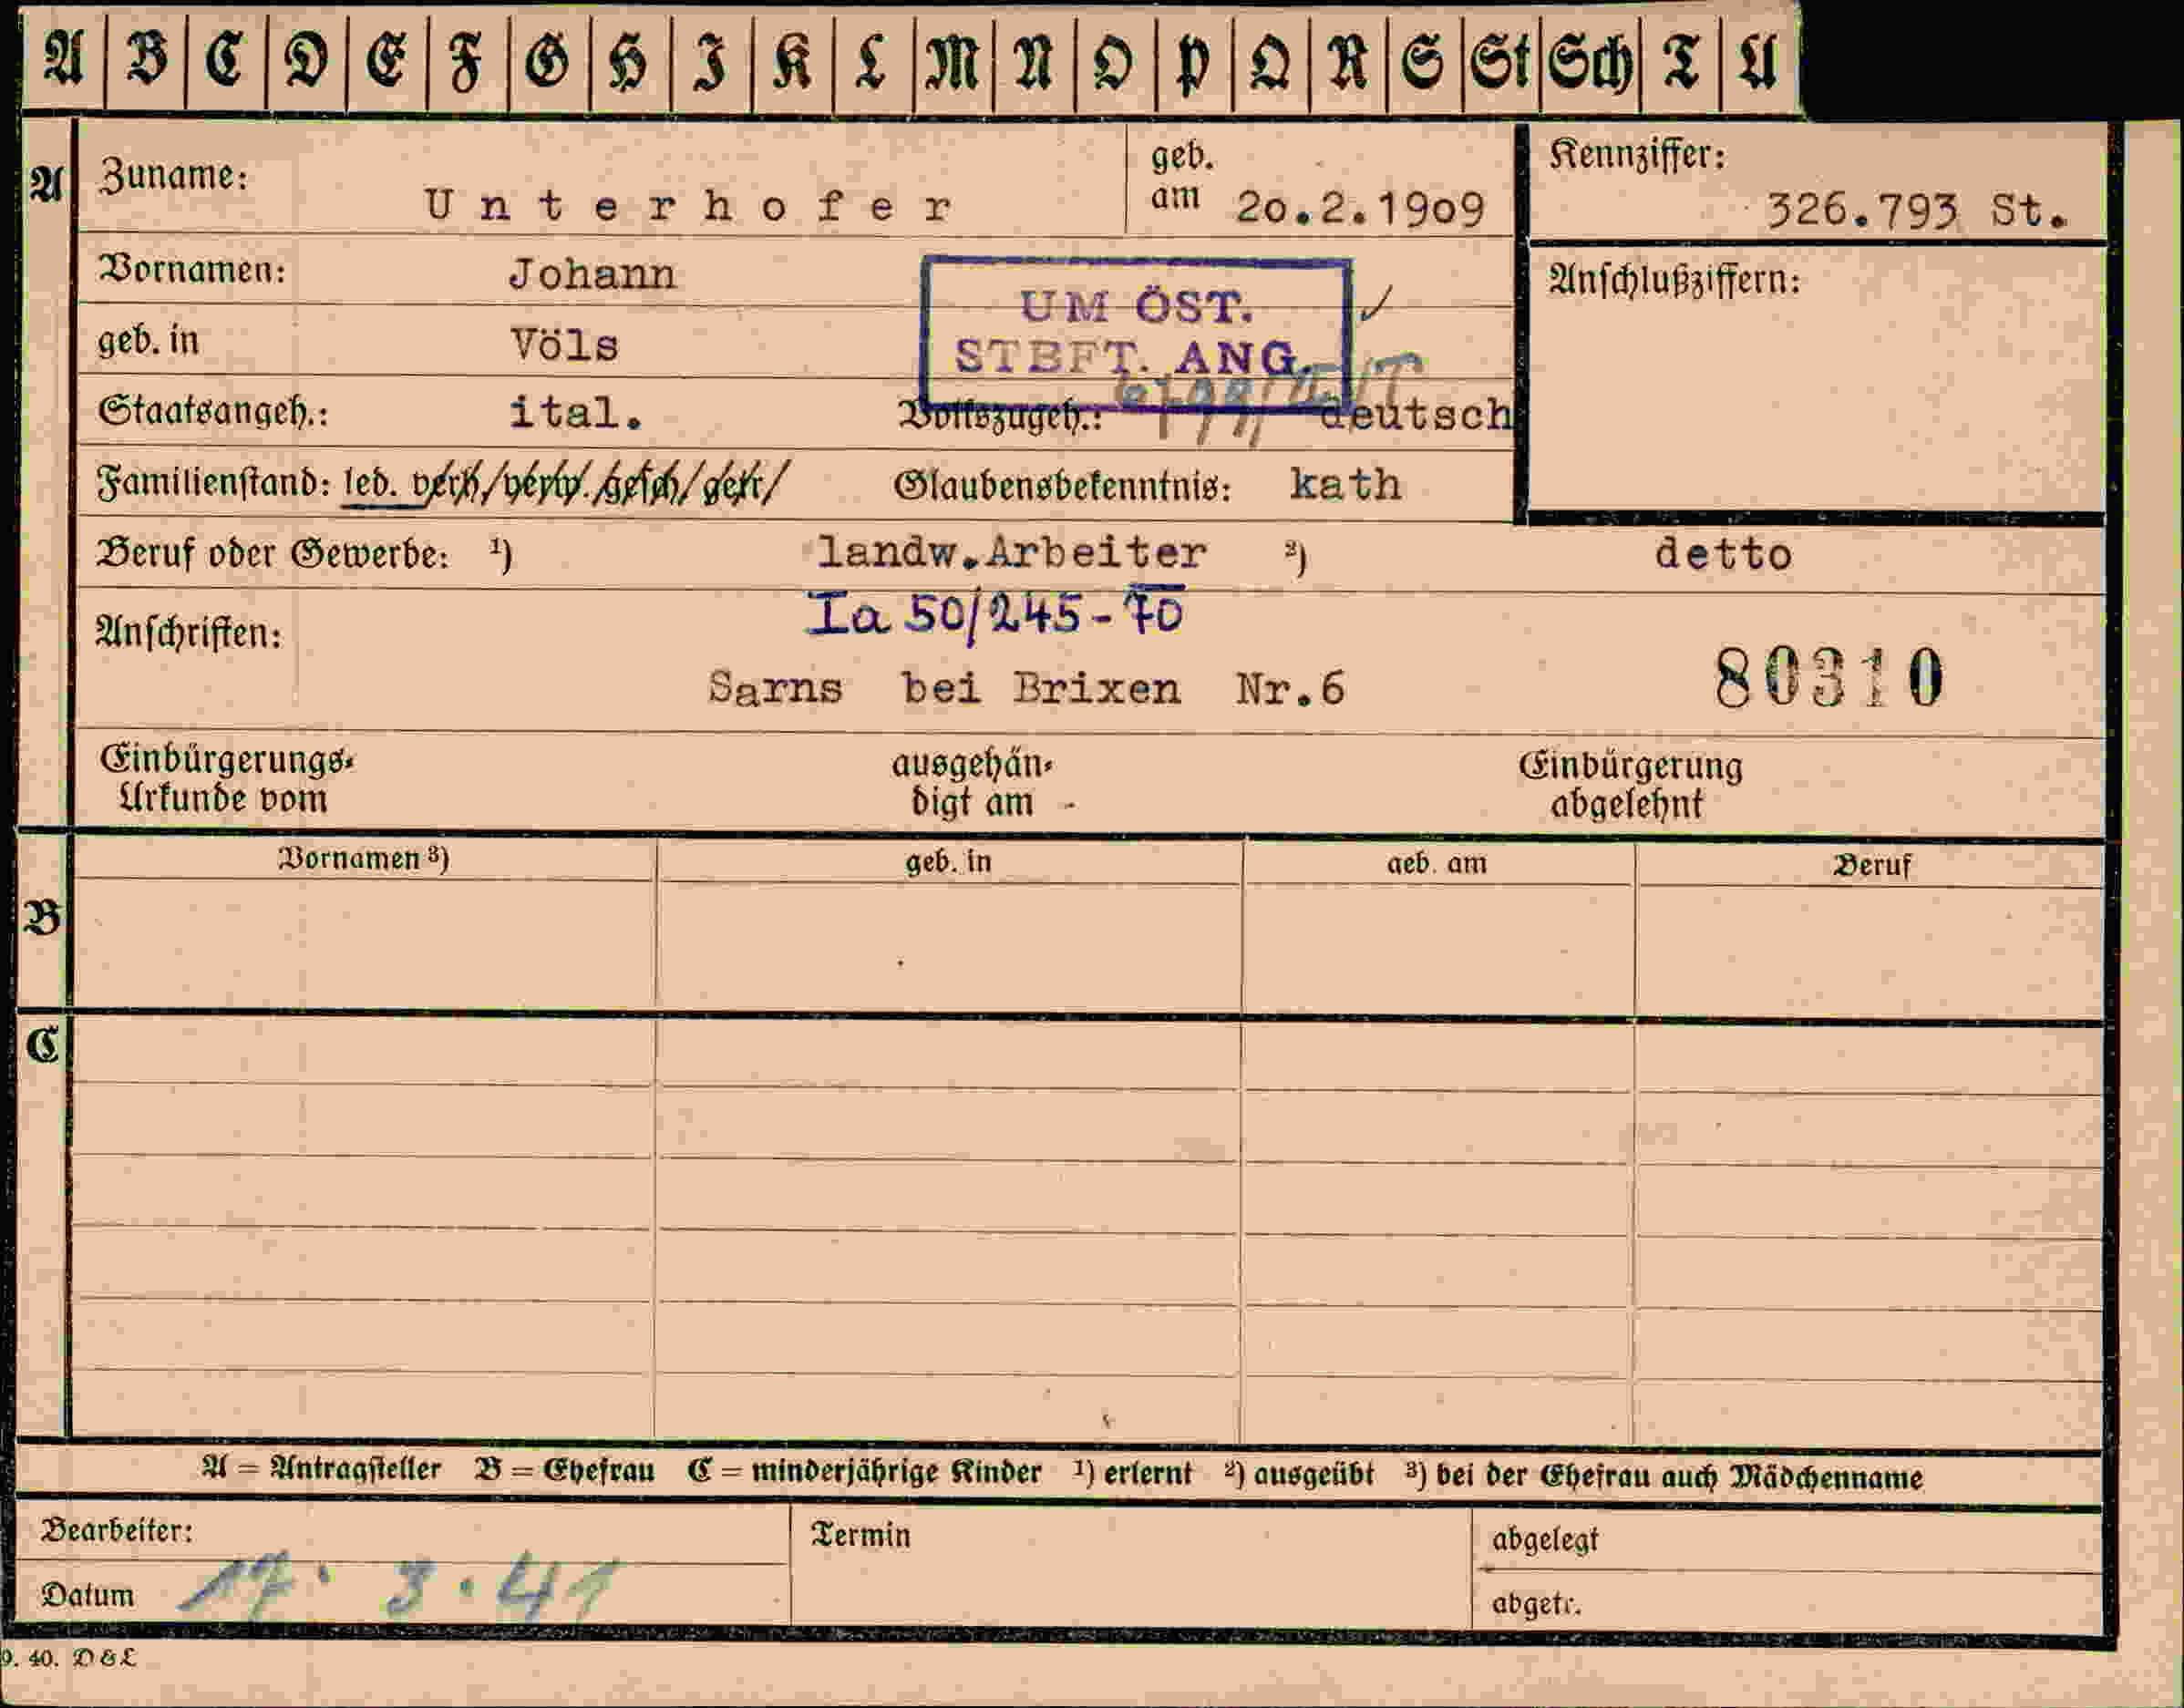 A B C D E F G H I K L M N O P Q R S St Sch T U
A Zuname: Unterhofer geb. am 20.2.1909 Kennziffer: 326.793 St.
Vornamen: Johann Anschlußziffern:
UM ÖST.
geb. in Völs
STBFT. ANG.
Staatsangeh.: ital. Volkszugeh.: deutsch
Familienstand: led. verh/verw./gesch/getr/ Glaubensbekenntnis: kath
Beruf oder Gewerbe: ¹) landw.Arbeiter ²) detto
Ia 50/245-70
Anschriften:
Sarns bei Brixen Nr.6 80310
Einbürgerungs- ausgehän- Einbürgerung
Urkunde vom digt am - abgelehnt
Vornamen ³) geb. in geb. am Beruf
B
C
A = Antragsteller B = Ehefrau C = minderjährige Kinder ¹) erlernt ²) ausgeübt ³) bei der Ehefrau auch Mädchenname
Bearbeiter: Termin abgelegt
Datum 17. 3. 41 abgetr.
9. 40. D & L